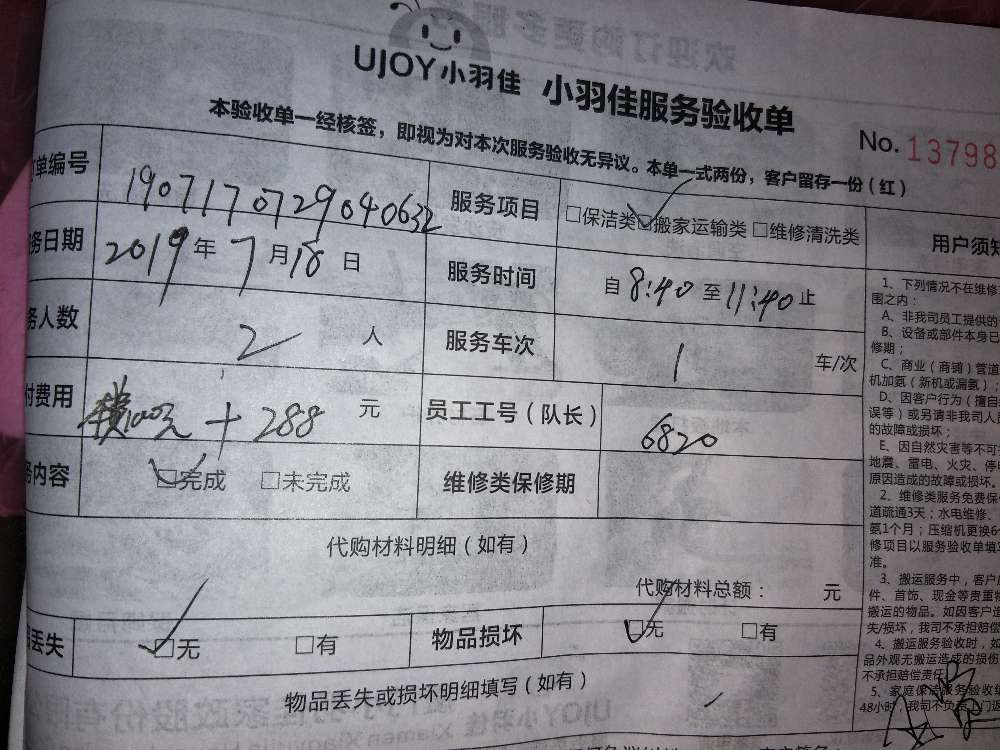 UJOY小羽佳 小羽佳服务验收单
No. 13798
本验收单一经核签，即视为对本次服务验收无异议。本单一式两份，客户留存一份（红）
单编号 1907170729040632 服务项目 □保洁类 □搬家运输类 □维修清洗类
务日期 2019年7月18日 服务时间 自8:40至11:40止
务人数 2 人 服务车次 1 车/次
付费用 100元+288 元 员工工号（队长） 6820
务内容 □完成 □未完成 维修类保修期
代购材料明细（如有）
代购材料总额： 元
丢失 □无 □有 物品损坏 □无 □有
物品丢失或损坏明细填写（如有）
用户须知
1、下列情况不在维修
围之内：
A、非我司员工提供的
B、设备或部件本身已
修期；
C、商业（商铺）管道
机加氨（新机或漏氨）
D、因客户行为（擅自
误等）或另请非我司人员
的故障或损坏；
E、因自然灾害等不可
地震、雷电、火灾、停
原因造成的故障或损坏。
2、维修类服务免费保
道疏通3天；水电维修、
氨1个月；压缩机更换6
修项目以服务验收单填
准。
3、搬运服务中，客户
件、首饰、现金等贵重物
搬运的物品。如因客户
失/损坏，我司不承担赔偿
4、搬运服务验收时，如
品外观无搬运造成的损伤
不承担赔偿责任
5、家庭保洁服务验收
48小时，我司不负责上门返